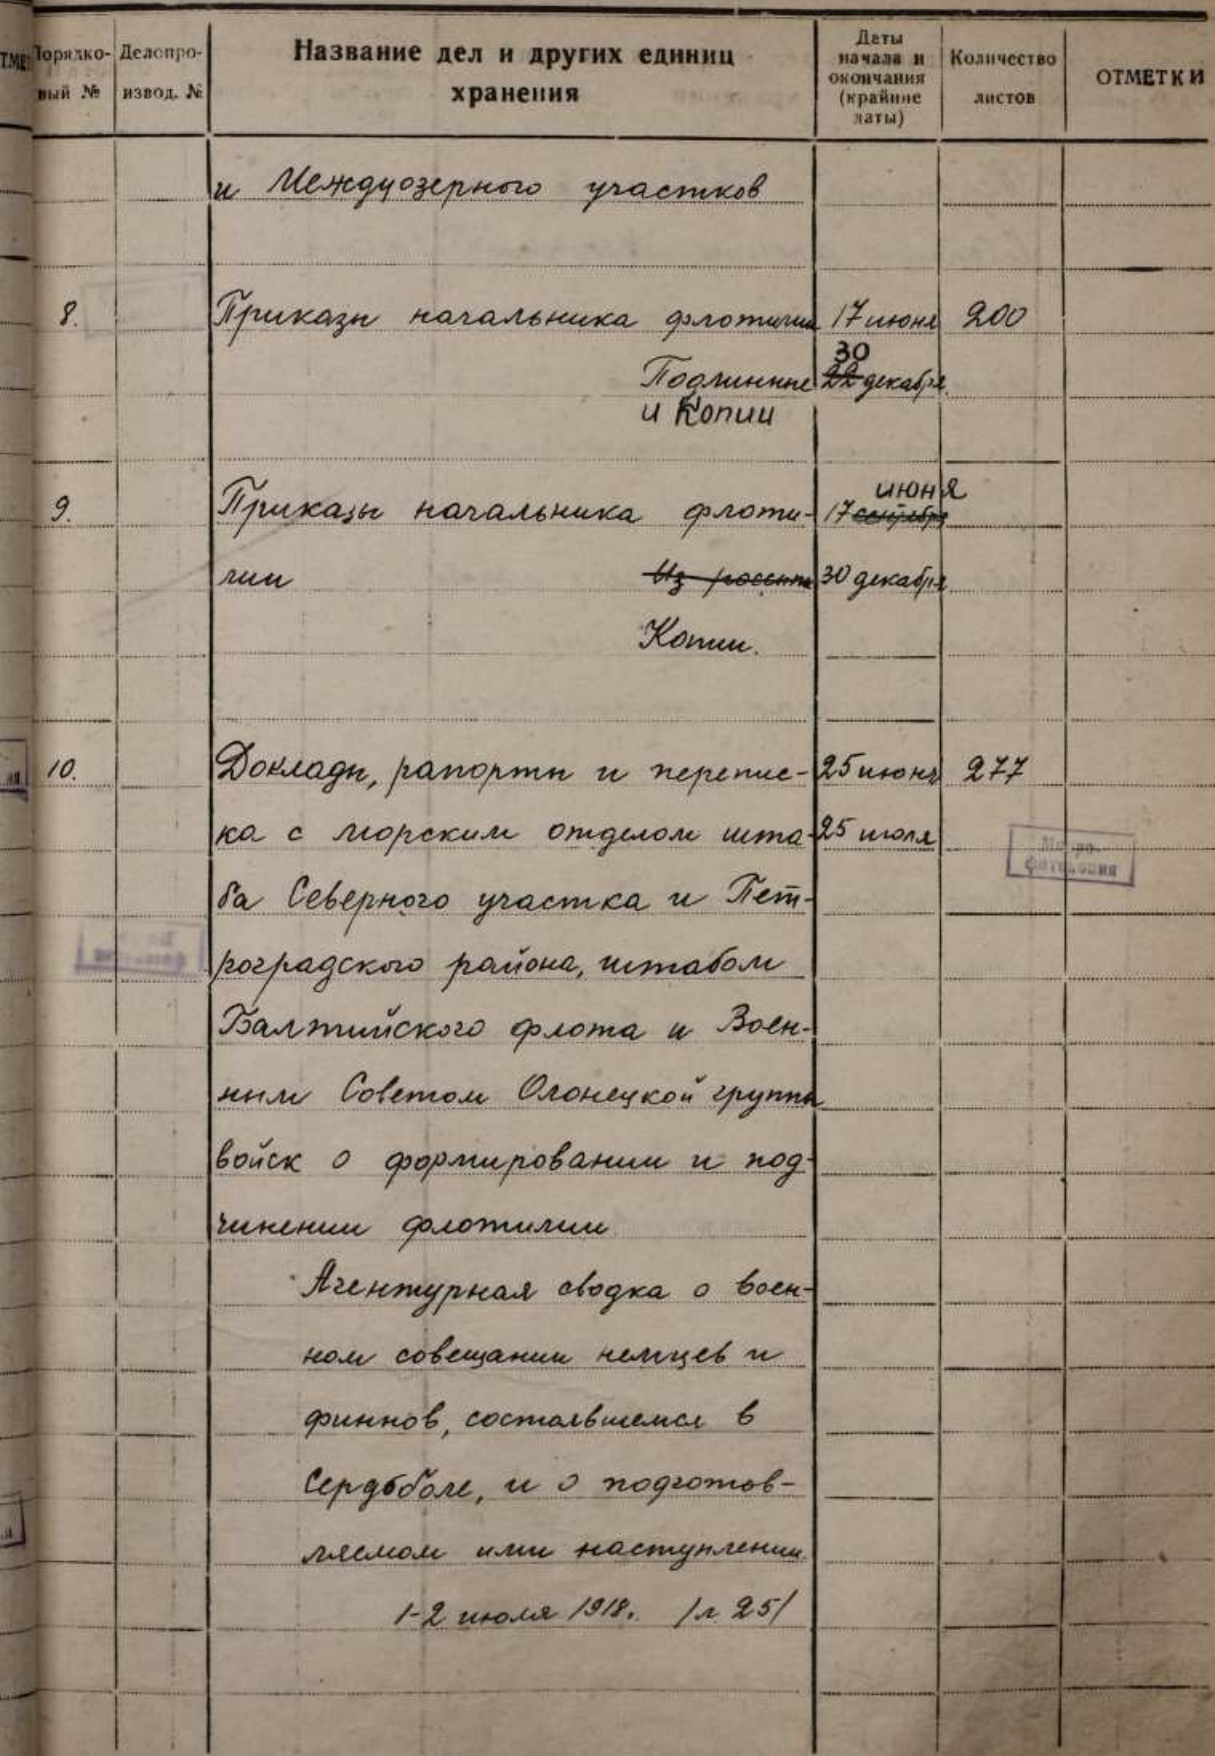 Порядко-
вый №
Делопро-
извод. №
Название дел и других единиц
хранения
Даты
начала и
окончания
(крайние
даты)
Количество
листов
ОТМЕТКИ
и Междуозерного участков
8. Приказы начальника флотилии 17 июня 200
30
Подлинные 22 декабря
и Копии
июня
9. Приказы начальника флоти- 17 сентября
лии Из россыпи 30 декабря
Копии.
10. Доклады, рапорты и перепис- 25 июня 277
ка с морским отделом шта- 25 июля
ба Северного участка и Пет-
роградского района, штабом
Балтийского флота и Воен-
ным Советом Олонецкой группы
войск о формировании и под-
чинении флотилии
Агентурная сводка о воен-
ном совещании немцев и
финнов, состоявшемся в
Сердоболе, и о подготов-
ляемом ими наступлении.
1-2 июля 1918. /л. 25/